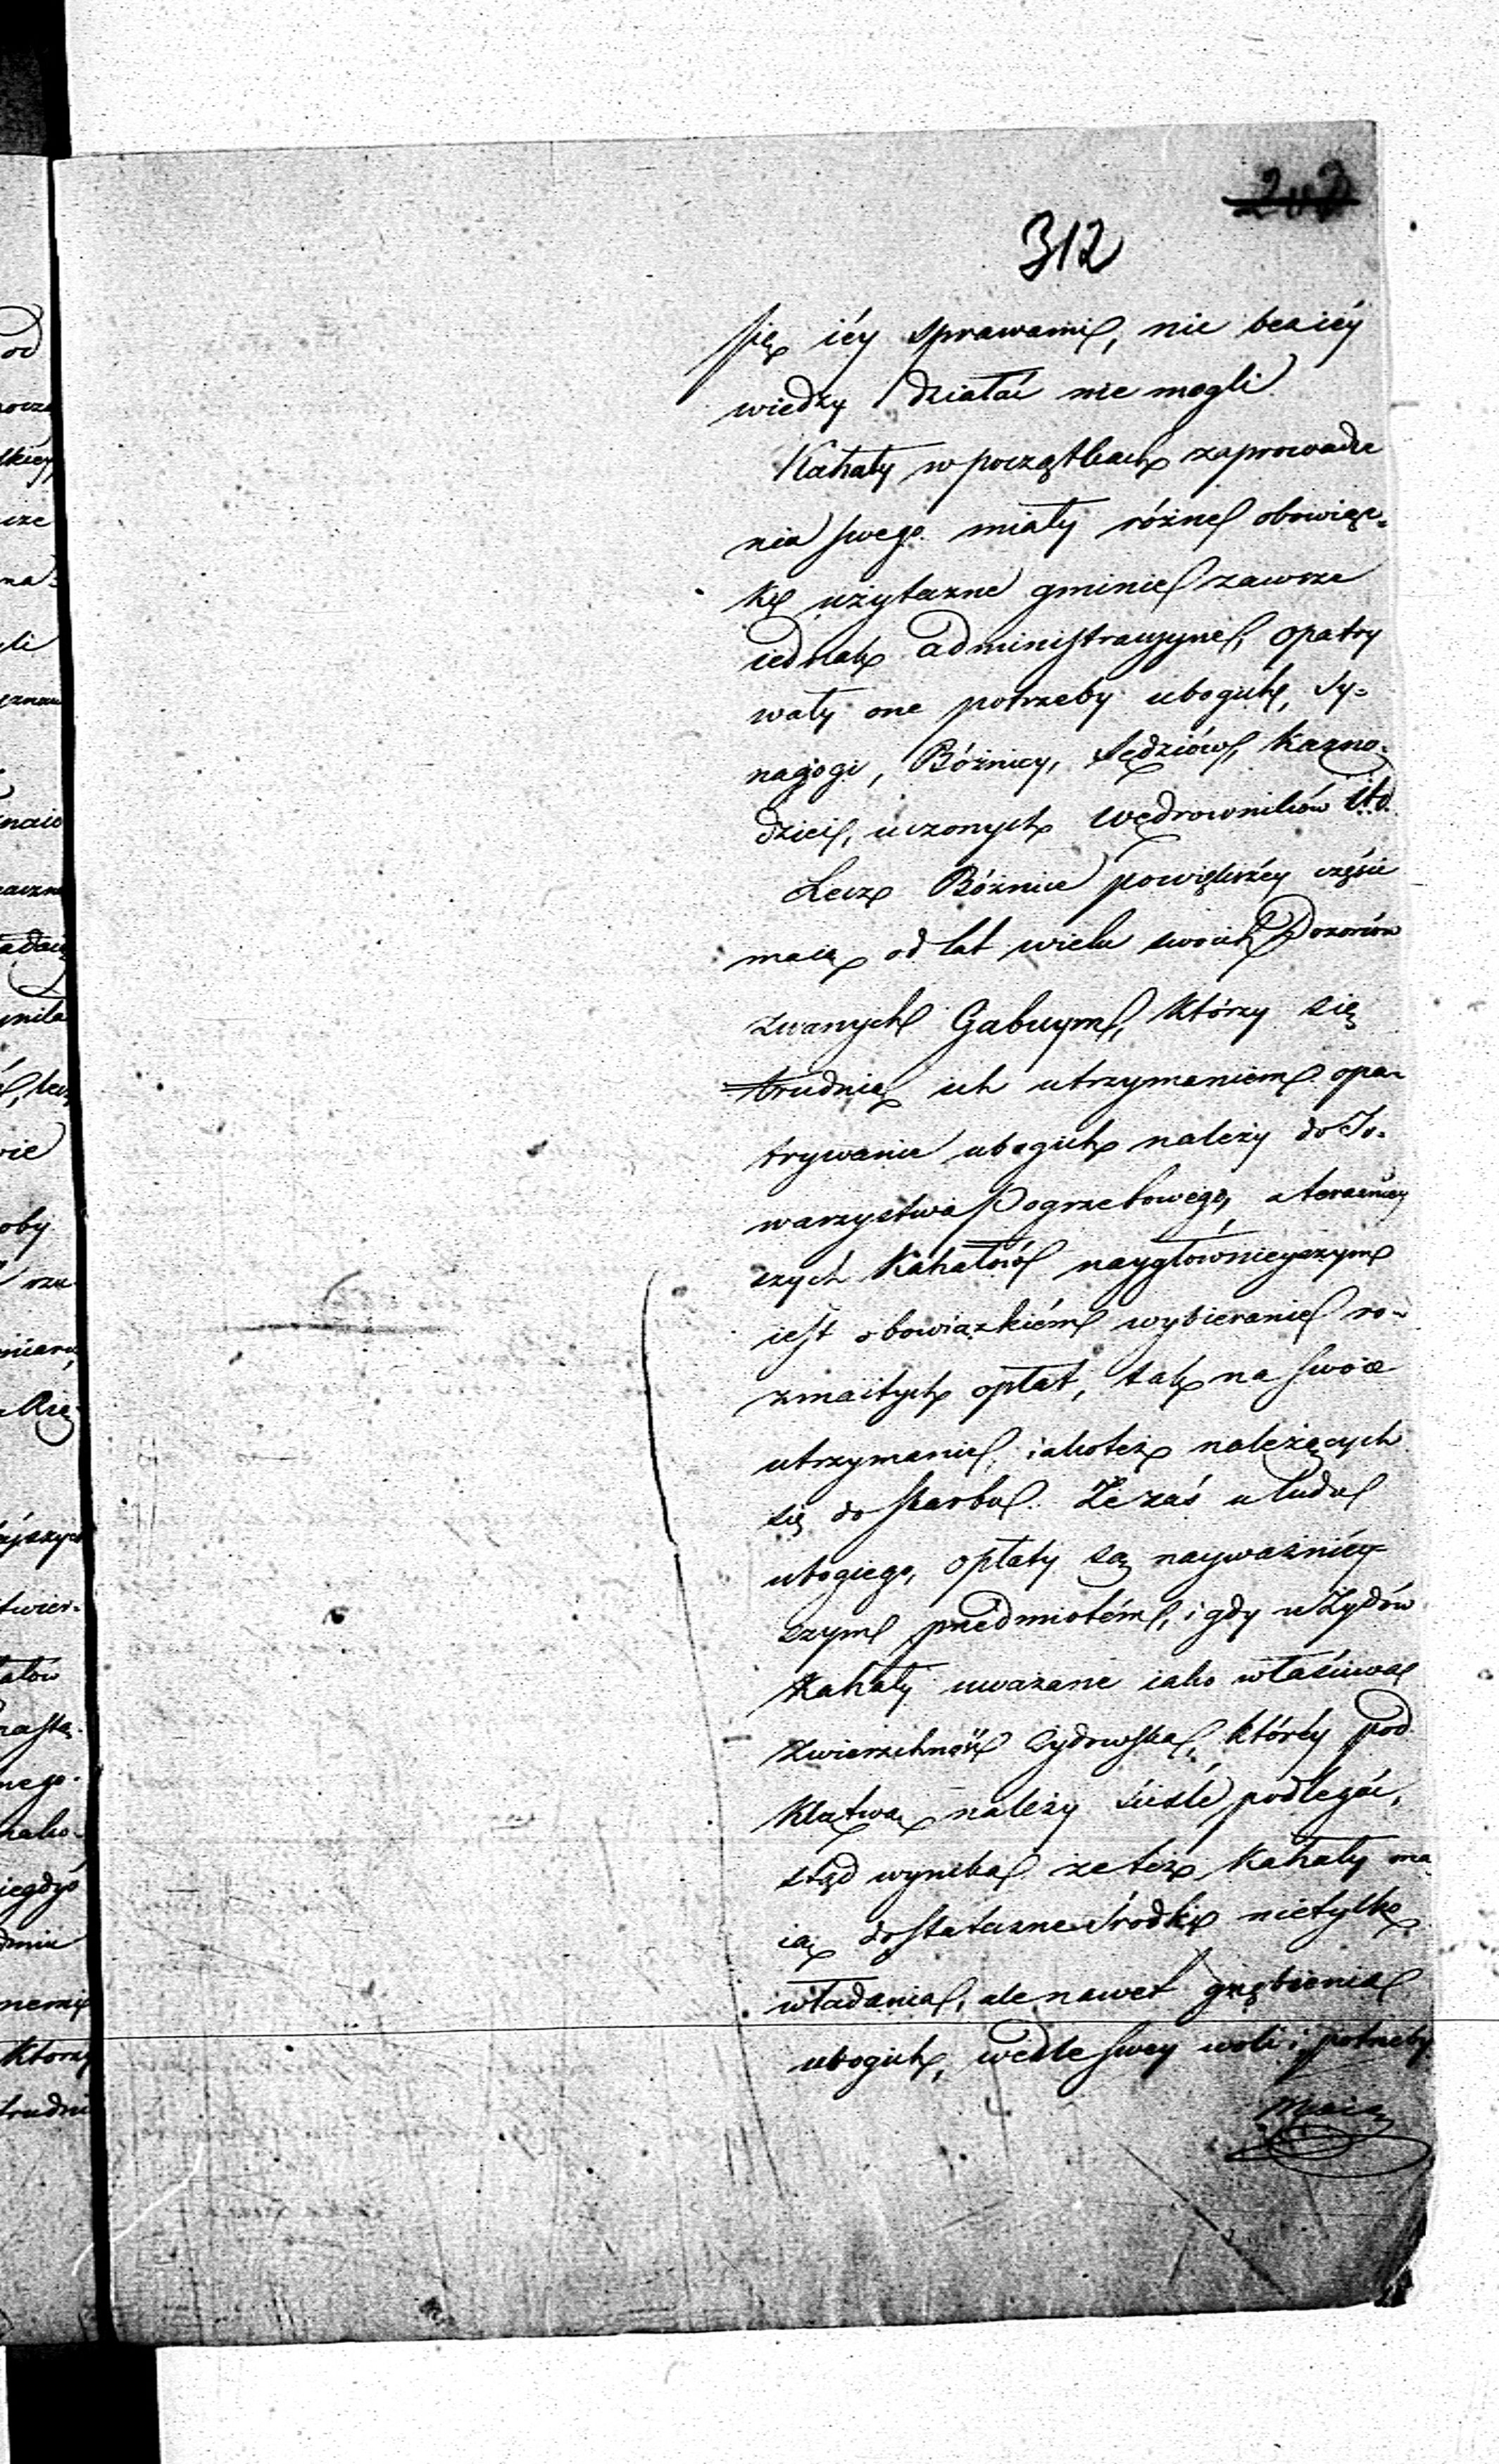 202
312
się iéy sprawami, nic bez iéy
wiedzy działać nie mogli
Kahały w początkach zaprowadze
nia swego miały różne obowiąz-
ki użyteczne gminie zawsze
iednak administracyyne, opatry
wały one potrzeby ubogich, Sy-
nagogi, Bóżnicy, Sędziów, Kazno-
dziei, uczonych wędrowników itd.
Lecz Bóżnice powiększéy części
maią od lat wielu swoich Dozorców
zwanych Gabuym, którzy się
trudnią ich utrzymaniem opa-
trywanie ubogich należy do To-
warzystwa Pogrzebowego, a teraźniey
szych Kahałów naygłównieyszym
iest obowiązkiém wybieranie ro-
zmaitych opłat, tak na swoie
utrzymanie, iakoteż należących
się do Skarbu. Że zaś u ludu
ubogiego, opłaty są nayważniéy-
szym przedmiotém, i gdy u Żydów
Kahały uważane iako właściwa
Zwierzchność Żydowska, któréy pod
Klątwą należy ściśle podlegać,
stąd wynika że też Kahały ma
ią dostateczne środki nietylko
władania, ale nawet gnębienia
ubogich, wedle swey woli i potrzeby